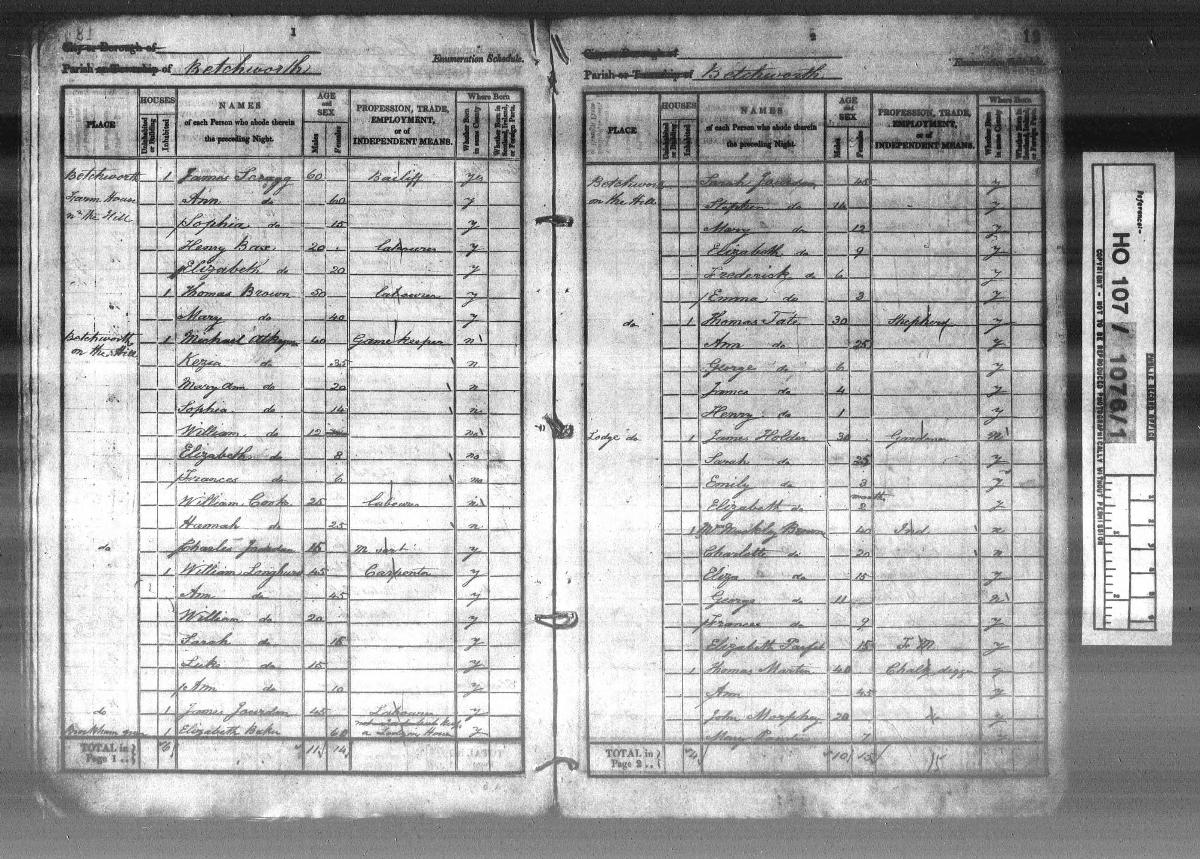 1
City or Borough of
Parish or Township of Betchworth
Enumeration Schedule.
PLACE
HOUSES
Uninhabited or Building
Inhabited
NAMES
of each Person who abode therein the preceding Night.
AGE and SEX
Males
Females
PROFESSION, TRADE, EMPLOYMENT, or of INDEPENDENT MEANS.
Where Born
Whether Born in same County
Whether Born in Scotland, Ireland, or Foreign Parts.
Betchworth 1 James Scragg 60 Bailiff y
Farm House Ann do 60 y
on the Hill Sophia do 15 y
Henry Bax 20 labourer y
Elizabeth do 20 y
1 Thomas Brown 50 labourer y
Mary do 40 y
Betchworth 1 Michael 40 Game keeper n
on the Hill
Kezia do 35 n
Mary Ann do 20 n
Sophia do 14 n
William do 12 no
Elizabeth do 8 no
Frances do 6 no
William Cook 25 labourer n
Hannah do 25 n
do Charles Jourdon 15 y
1 William Longhurst 45 Carpenter y
Ann do 45 y
William do 20 y
Sarah do 15 y
Luke do 15 y
Ann do 10 y
do 1 James Jourdon 45 Labourer y
1 Elizabeth Baker 60 a House y
TOTAL in Page 1 6 11 14
2
City or Borough of
Parish or Township of Betchworth
Enumeration Schedule.
PLACE
HOUSES
Uninhabited or Building
Inhabited
NAMES
of each Person who abode therein the preceding Night.
AGE and SEX
Males
Females
PROFESSION, TRADE, EMPLOYMENT, or of INDEPENDENT MEANS.
Where Born
Whether Born in same County
Whether Born in Scotland, Ireland, or Foreign Parts.
Betchworth Sarah Jourdon 45 y
on the Hill Stephen do 14 y
Mary do 12 y
Elizabeth do 9 y
Frederick do 6 y
Emma do 3 y
do 1 Thomas Tate 30 Shepherd y
Ann do 25 y
George do 6 y
James do 4 y
Henry do 1 y
Lodge do 1 James Holder 30 Gardener n
Sarah do 25 y
Emily do 3 y
months
Elizabeth do 2 y
1 Brown 40 Ind n
Charlotte do 20 n
Eliza do 15 y
George do 11 n
Frances do 9 y
Elizabeth 15 F S y
1 Thomas Martin 40 Chalk digger y
Ann 45 y
John Morphey 20 do y
Mary 7 y
TOTAL in Page 2 4 10 15
Reference:-
HO 107 / 1076/1
PUBLIC RECORD OFFICE
COPYRIGHT - NOT TO BE REPRODUCED PHOTOGRAPHICALLY WITHOUT PERMISSION